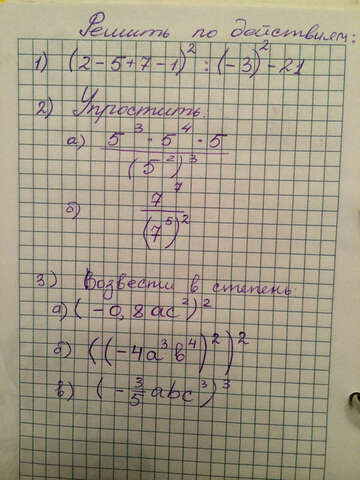 Решить по действиям:
1) (2-5+7-1)² : (-3)² - 21
2) Упростить.
а) 5³ · 5⁴ · 5
(5²)³
б) 7⁷
(7⁵)²
3) Возвести в степень
а) (-0,8ac²)²
б) ((-4a³b⁴)²)²
в) (-3/5 abc³)³